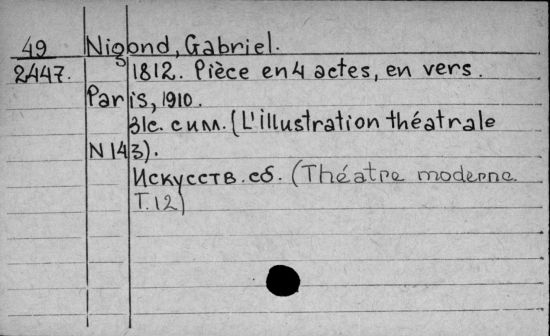 49 Nigond, Gabriel.
2447. 1812. Pièce en 4 actes, en vers.
Paris, 1910.
31c. с илл. (L'illustration théatrale
N 143).
Искусств. сб. (Théatre moderne.
T.12)